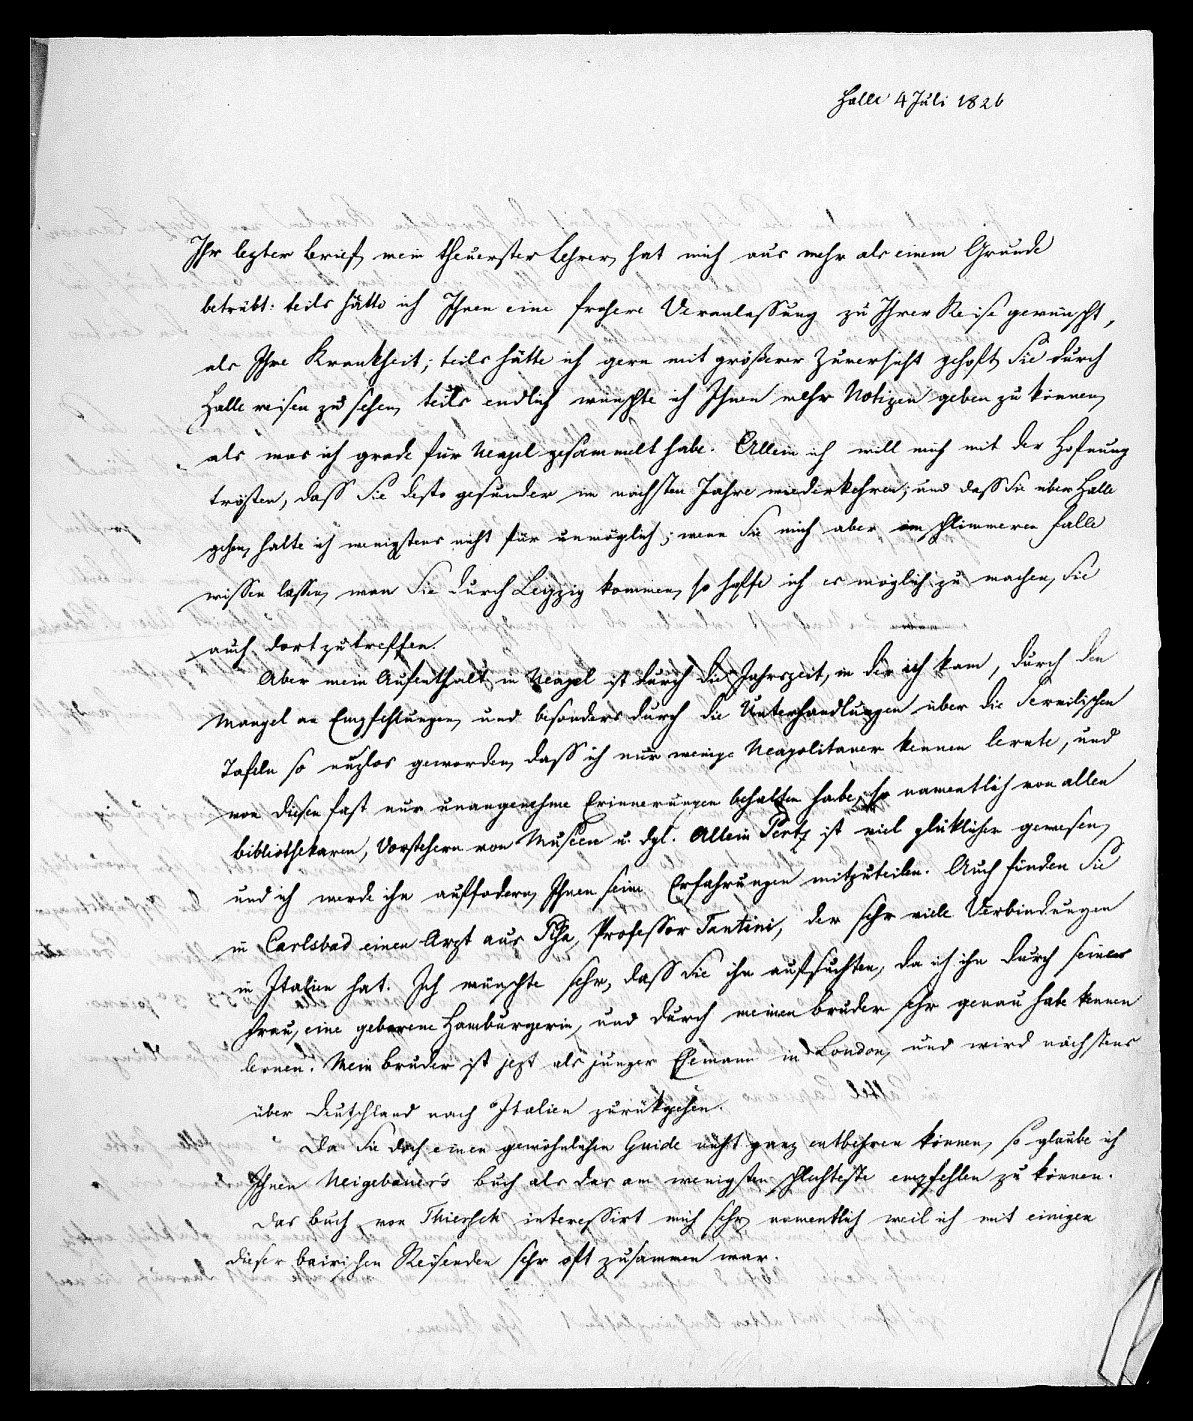 Halle 4 Juli 1826
Ihr lezter Brief, mein theuerster Lehrer, hat mich aus mehr als einem Grunde
betrübt: teils hätte ich Ihnen eine frohere Veranlassung zu Ihrer Reise gewünscht,
als Ihre Krankheit; teils hätte ich gern mit größerer Zuversicht gehofft, Sie durch
Halle reisen zu sehen, teils endlich wünschte ich Ihnen mehr Notizen geben zu können,
als was ich grade für Neapel gesammelt habe. Allein ich will mich mit der Hofnung
trösten, dass Sie desto gesunder im nächsten Jahre wiederkehren; und dass Sie über Halle
gehen, halte ich wenigstens nicht für unmöglich; wenn Sie mich aber im schlimmeren Falle
wissen lassen, wan Sie durch Leipzig kommen, so hoffe ich es möglich zu machen, Sie
auch dort zu treffen.
Aber mein Aufenthalt in Neapel ist durch die Jahrszeit, in der ich kam, durch den
Mangel an Empfehlungen, und besonders durch die Unterhandlungen über die Servilischen
Tafeln so nuzlos geworden, dass ich nur wenige Neapolitaner kennen lernte, und
von diesen fast nur unangenehme Erinnerungen behalten habe, so namentlich von allen
Bibliothekaren, Vorstehern von Museen u. dgl. Allein Pertz ist viel glüklicher gewesen,
und ich werde ihn auffodern, Ihnen seine Erfahrungen mitzuteilen. Auch finden Sie
in Carlsbad einen Arzt aus Pisa, Professor Tantini, der sehr viele Verbindungen
in Italien hat. Ich wünschte sehr, dass Sie ihn aufsuchten, da ich ihn durch seine
Frau, eine geborene Hamburgerin, und durch meinen Bruder sehr genau habe kennen
lernen. Mein Bruder ist jezt als junger Ehemann in London, und wird nächstens
über Deutschland nach Italien zurükgehen.
Da Sie doch einen gewöhnlichen Guide nicht ganz entbehren können, so glaube ich
Ihnen Neigebauer's Buch als das am wenigsten schlechteste empfehlen zu können.
Das Buch von Thiersch interessirt mich sehr, namentlich weil ich mit einigen
dieser bairischen Reisenden sehr oft zusammen war.